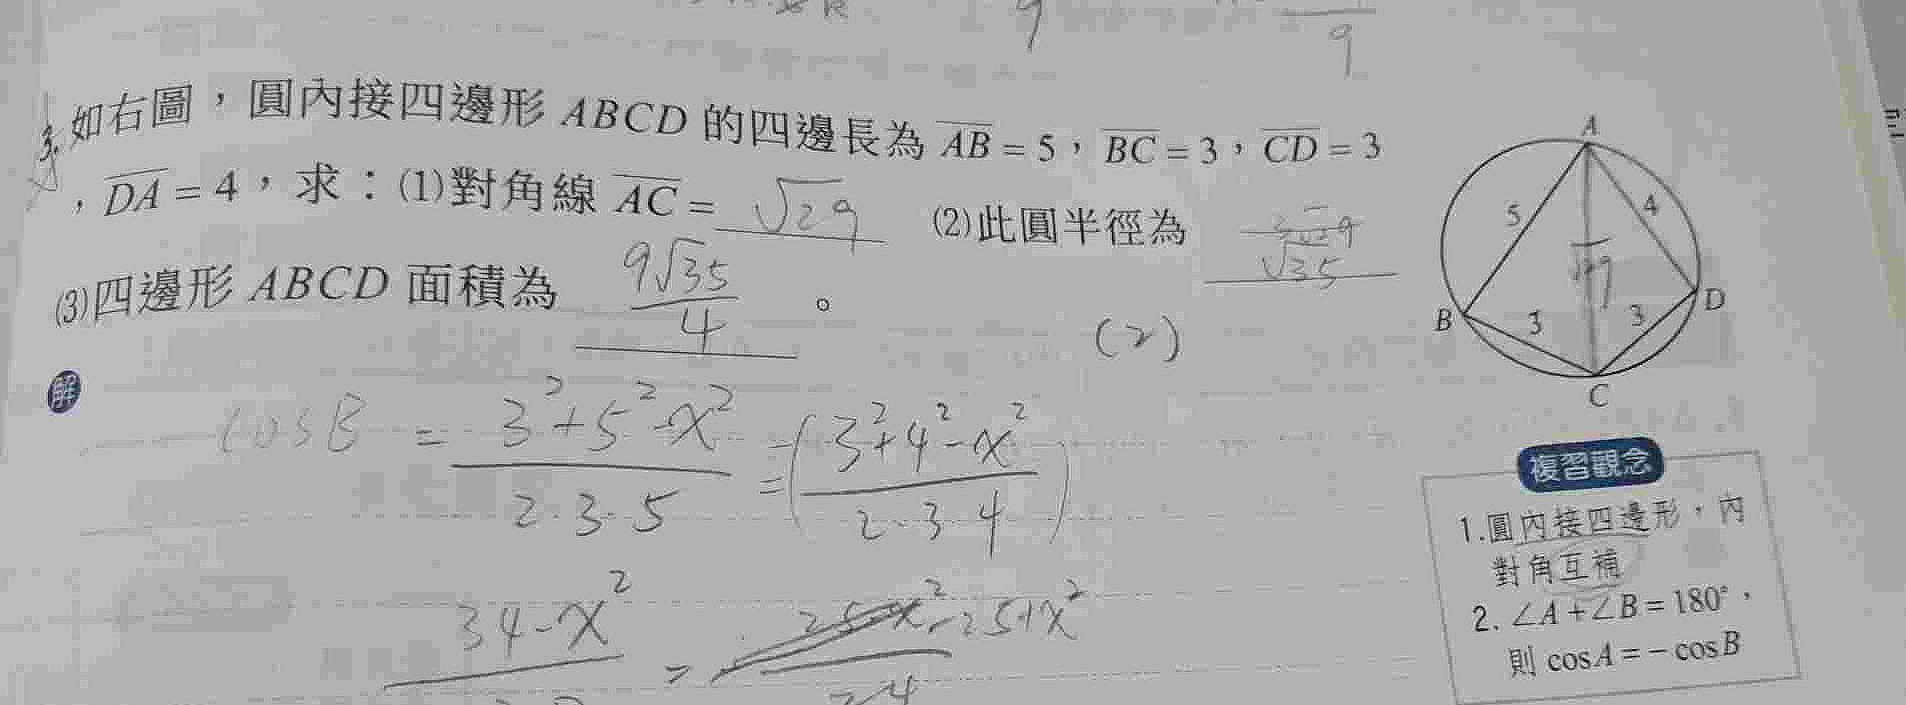 9
9
3.如右圖,圓內接四邊形 ABCD 的四邊長為 AB = 5,BC = 3,CD = 3
,DA = 4,求:(1)對角線 AC = √29 (2)此圓半徑為 √35
(3)四邊形 ABCD 面積為 9√35/4 。
(2)
解
cosB = (3²+5²-x²)/(2·3·5) = -((3²+4²-x²)/(2·3·4))
(34-x²)/ = (-25+x²)/24
A
5
4
√29
B
3
3
D
C
複習觀念
1.圓內接四邊形,內
對角互補
2. ∠A+∠B=180°,
則 cosA=-cosB